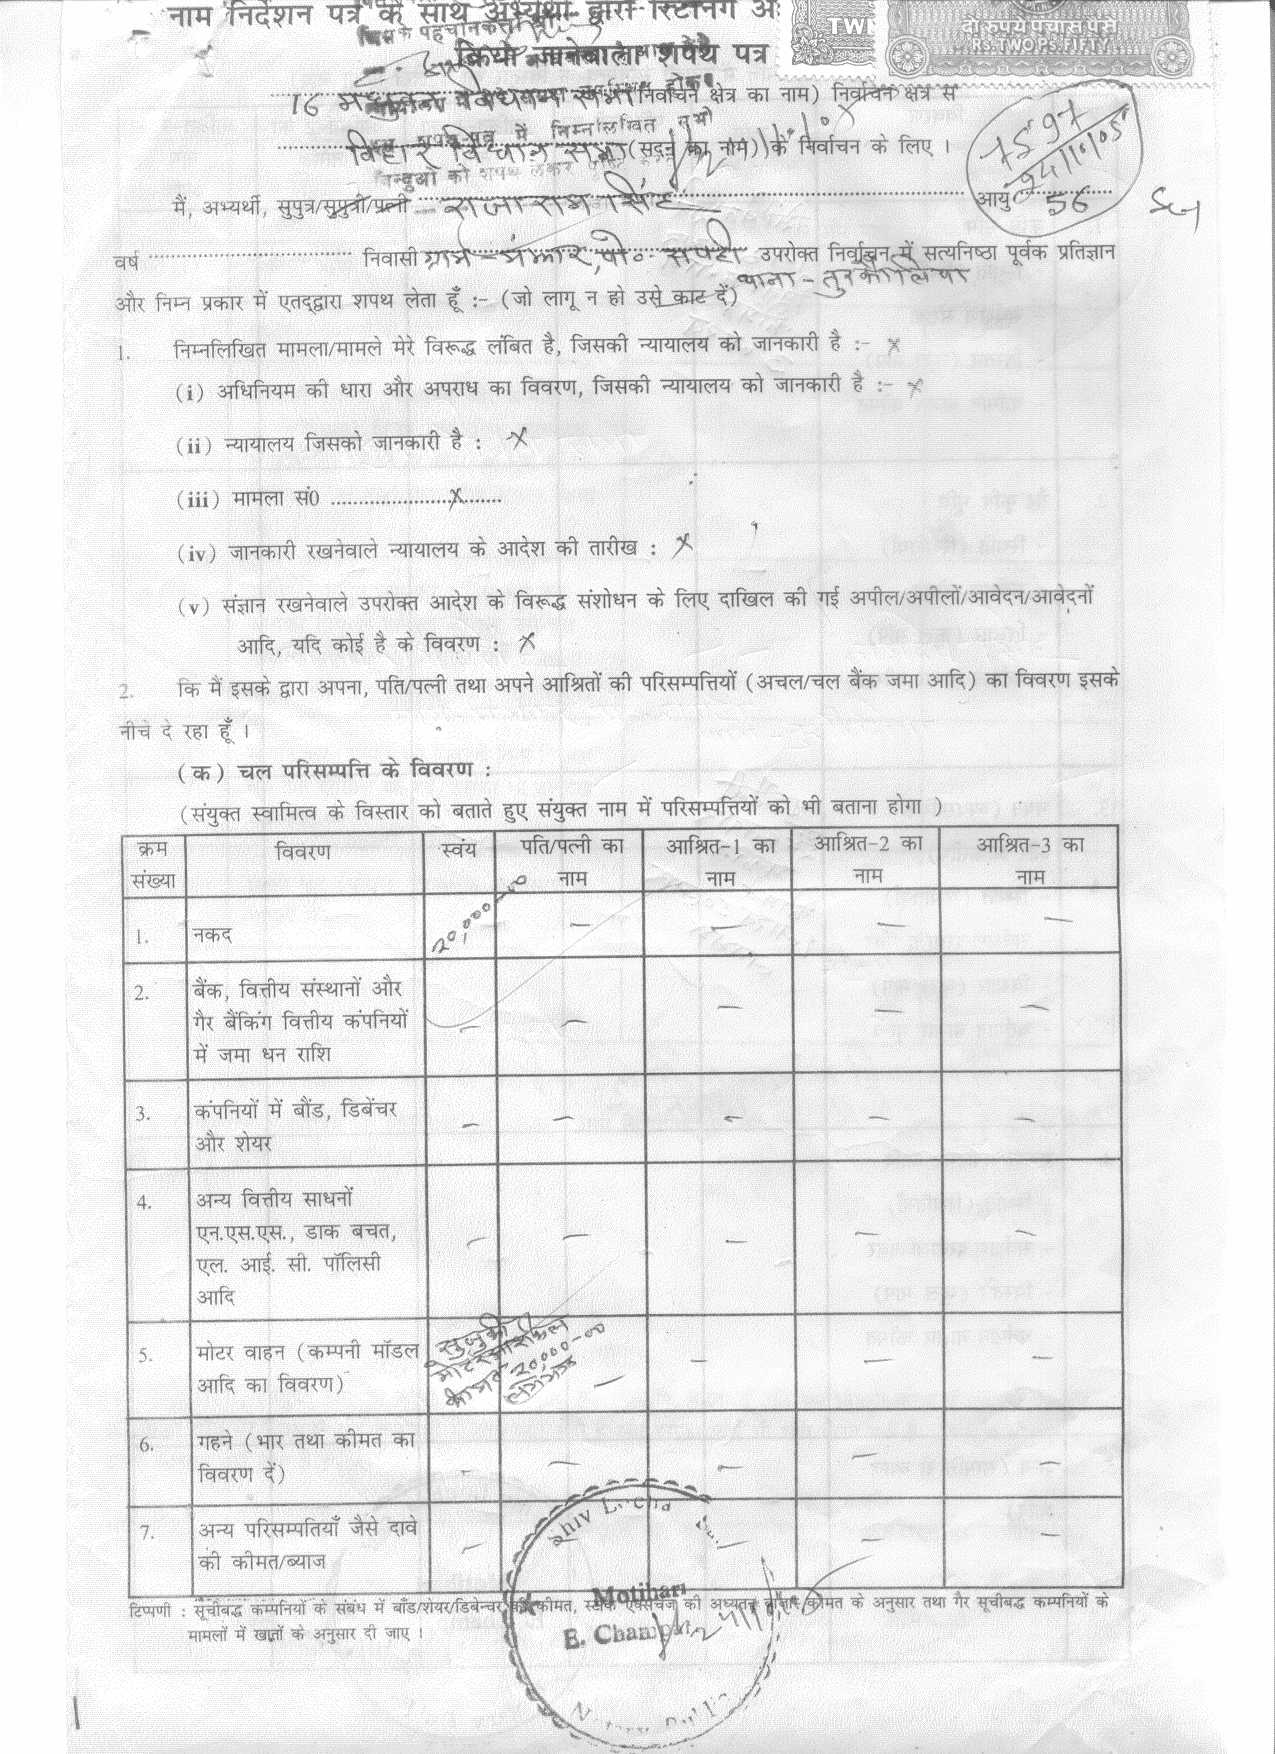 नाम निर्देशन पत्र के साथ अभ्यर्थी द्वारा रिटर्निंग
TWO
दो रुपये पचास पैसे
RS. TWO PS. FIFTY
किया जानेवाला शपथ पत्र
16 विधान सभा (निर्वाचन क्षेत्र का नाम) निर्वाचन क्षेत्र से
बिहार विधान सभा (सदन का नाम) के निर्वाचन के लिए ।
7597
24/10/05
मैं, अभ्यर्थी, सुपुत्र/सुपुत्री/पत्नी राजाराम सिंह आयु 56
वर्ष निवासी ग्राम - मंझार, पो०- सपही उपरोक्त निर्वाचन में सत्यनिष्ठा पूर्वक प्रतिज्ञान
थाना - तुरकौलिया
और निम्न प्रकार में एतद्द्वारा शपथ लेता हूँ :- (जो लागू न हो उसे काट दें)
1. निम्नलिखित मामला/मामले मेरे विरूद्ध लंबित है, जिसकी न्यायालय को जानकारी है :- x
(i) अधिनियम की धारा और अपराध का विवरण, जिसकी न्यायालय को जानकारी है :- x
(ii) न्यायालय जिसको जानकारी है : x
(iii) मामला सं0 ..........x..........
(iv) जानकारी रखनेवाले न्यायालय के आदेश की तारीख : x
(v) संज्ञान रखनेवाले उपरोक्त आदेश के विरूद्ध संशोधन के लिए दाखिल की गई अपील/अपीलों/आवेदन/आवेदनों
आदि, यदि कोई है के विवरण : x
2. कि मैं इसके द्वारा अपना, पति/पत्नी तथा अपने आश्रितों की परिसम्पत्तियों (अचल/चल बैंक जमा आदि) का विवरण इसके
नीचे दे रहा हूँ ।
(क) चल परिसम्पत्ति के विवरण :
(संयुक्त स्वामित्व के विस्तार को बताते हुए संयुक्त नाम में परिसम्पत्तियों को भी बताना होगा )
क्रम संख्या विवरण स्वंय पति/पत्नी का नाम आश्रित-1 का नाम आश्रित-2 का नाम आश्रित-3 का नाम
1. नकद 20,000-00 — — — —
2. बैंक, वित्तीय संस्थानों और — — — — —
गैर बैंकिंग वित्तीय कंपनियों
में जमा धन राशि
3. कंपनियों में बौंड, डिबेंचर — — — — —
और शेयर
4. अन्य वित्तीय साधनों
एन.एस.एस., डाक बचत, — — — — —
एल. आई. सी. पॉलिसी
आदि
5. मोटर वाहन (कम्पनी मॉडल सुजुकी — — — —
आदि का विवरण) मोटरसाईकिल
कीमत 20,000-00
लगभग
6. गहने (भार तथा कीमत का — — — — —
विवरण दें)
7. अन्य परिसम्पतियाँ जैसे दावे — — —
की कीमत/ब्याज
Motihari
E. Champaran
टिप्पणी : सूचीबद्ध कम्पनियों के संबंध में बॉंड/शेयर/डिबेन्चर की कीमत, स्टॉक एक्सचेंज की अध्यतन बाजार कीमत के अनुसार तथा गैर सूचीबद्ध कम्पनियों के
मामलों में खातों के अनुसार दी जाए ।